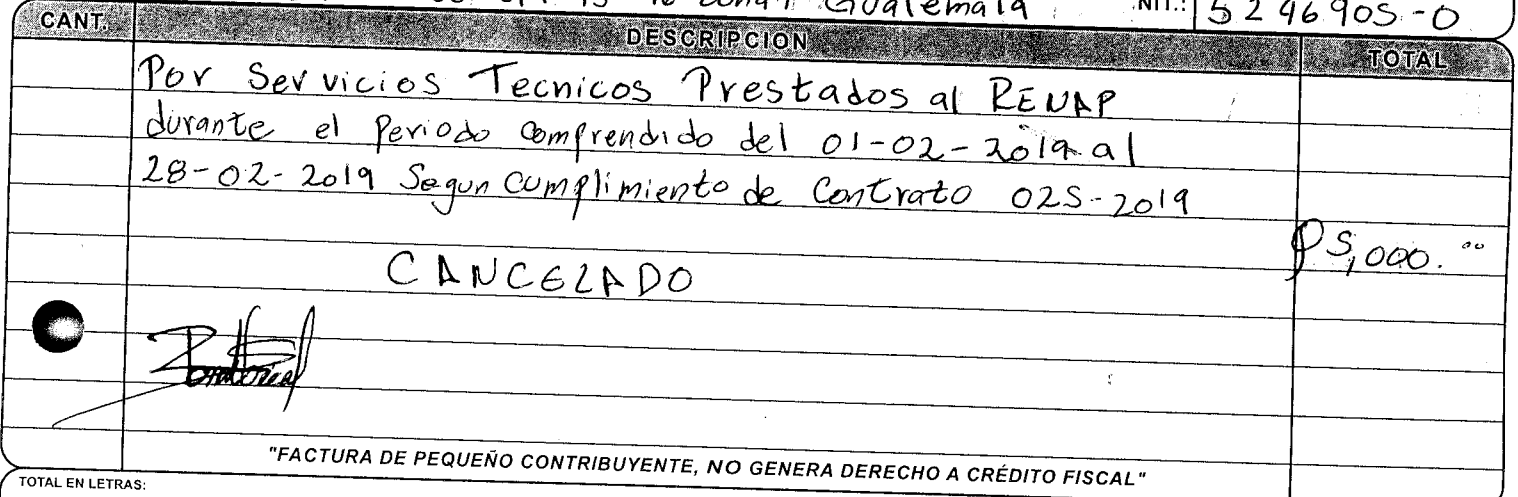 Guatemala NIT.: 5296905-0
CANT. DESCRIPCION TOTAL
Por Servicios Tecnicos Prestados al RENAP
durante el Periodo comprendido del 01-02-2019 al
28-02-2019 Segun cumplimiento de Contrato 025-2019
Q 5,000.00
CANCELADO
"FACTURA DE PEQUEÑO CONTRIBUYENTE, NO GENERA DERECHO A CRÉDITO FISCAL"
TOTAL EN LETRAS: